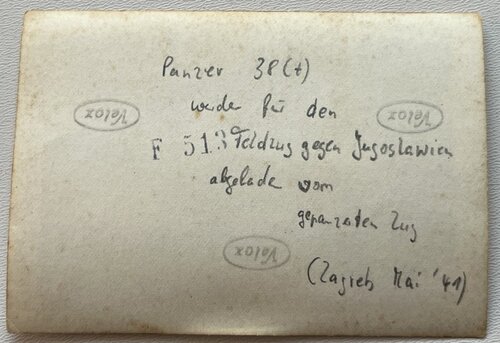 Panzer 38(t)
werden für den
Velox
Velox
F 513 Feldzug gegen Jugoslawien
abgeladen vom
gepanzerten Zug
Velox
(Zagreb Mai '41)